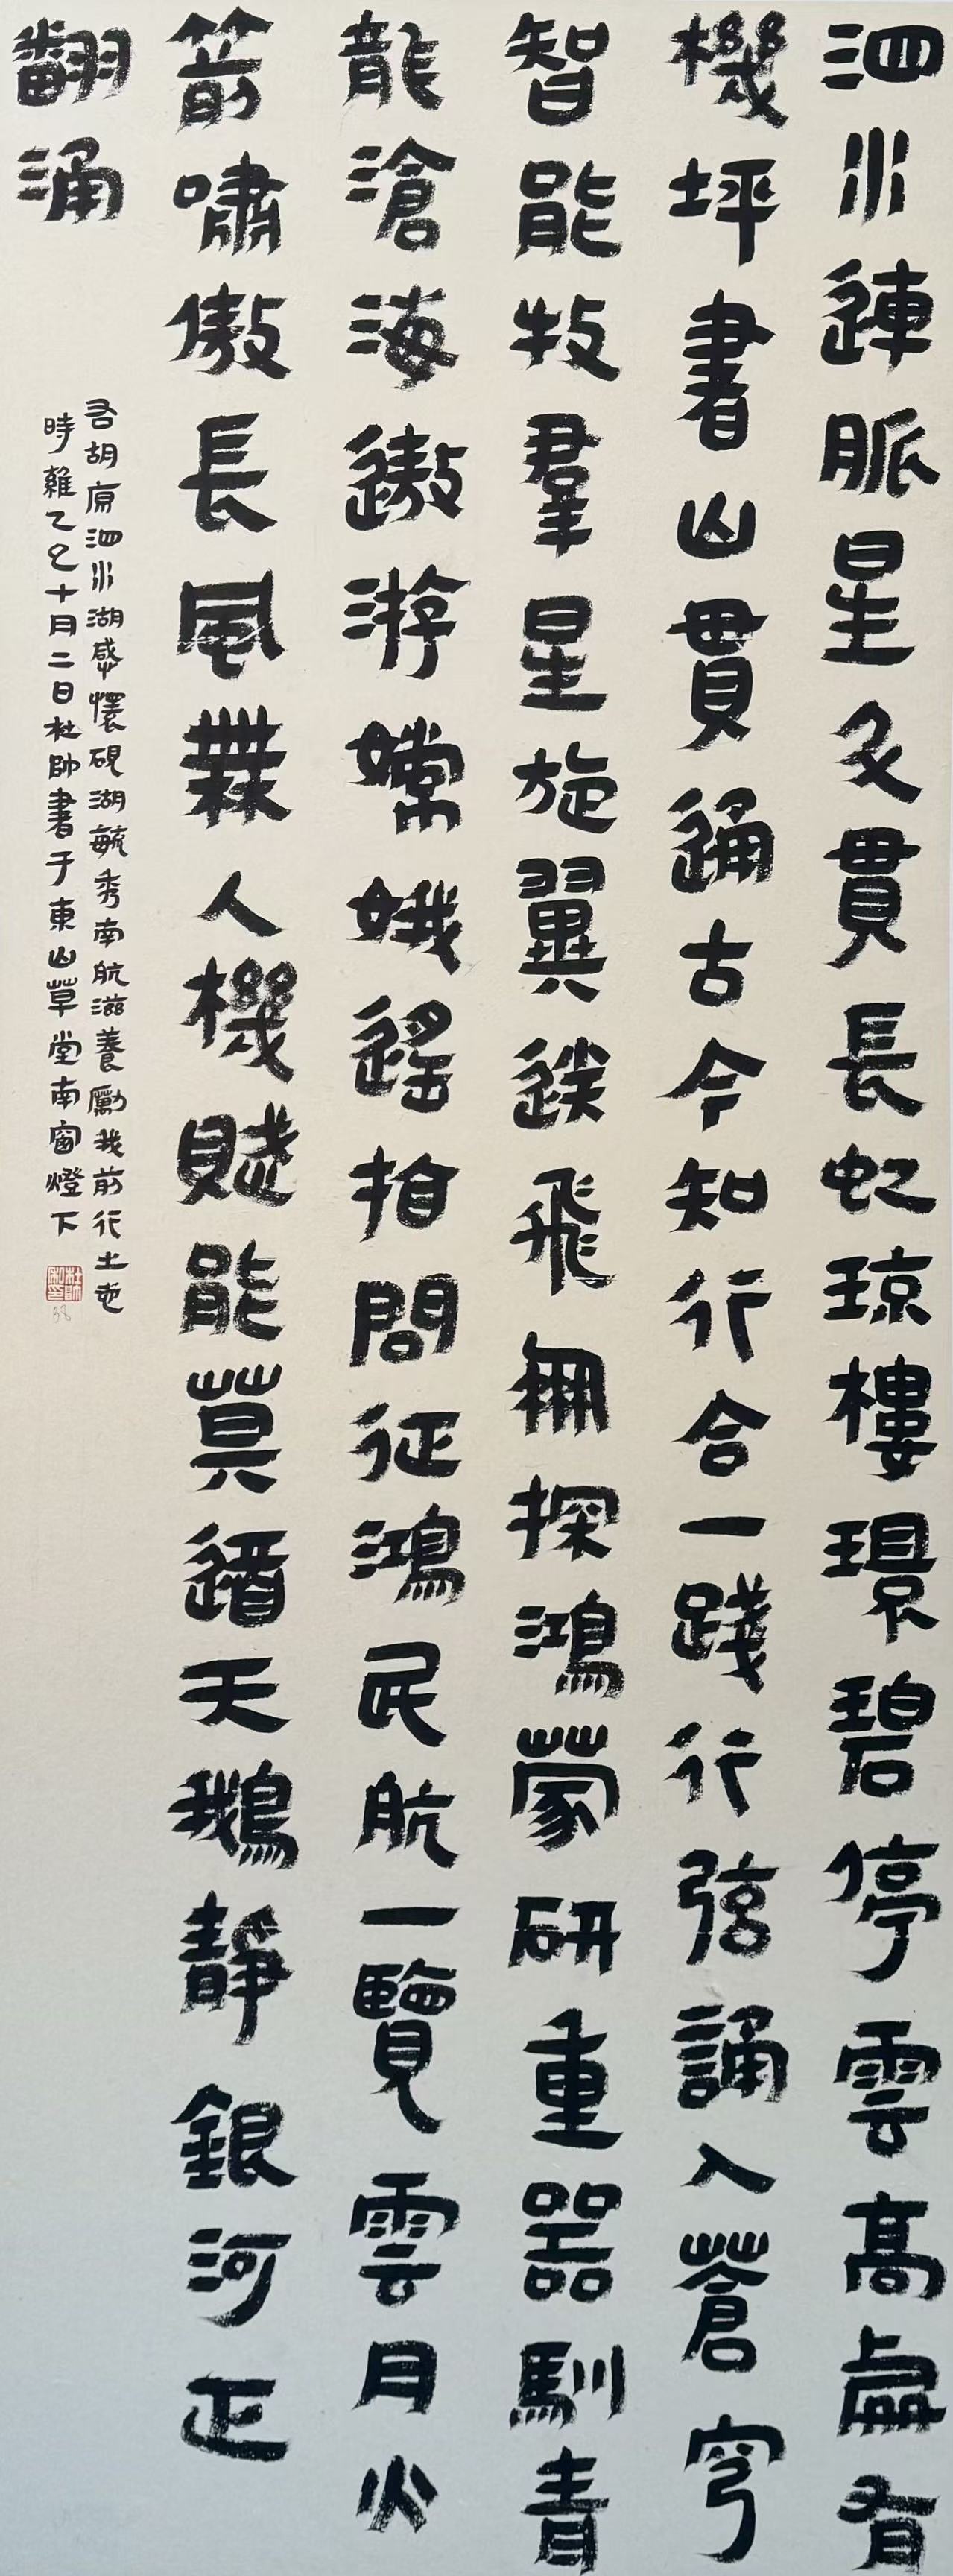 泗水連脈星久貫長虹琼樓璟碧停雲高處有
機坪書山貫通古今知行合一踐行弦誦入蒼穹
智能牧羣星施翼送飛無探鴻蒙研重器馴青
龍滄海遨游嫦娥遥拍問征鴻民航一覽雲月火
箭嘯傲長風舞人機賦能莫道天鵝靜銀河正
翻涌
吾胡席泗水湖感懷硯湖毓秀南航滋養勵我前行土也
時雜乙巳十月二日杜帥書于東山草堂南窗燈下